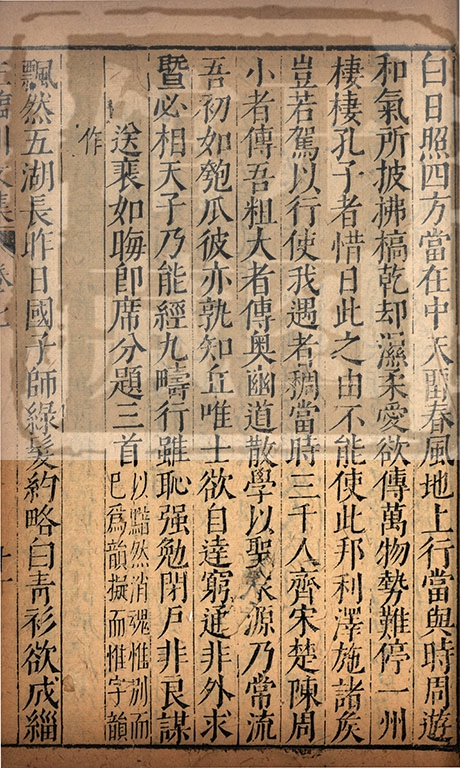 白日照四方當在中天留春風地上行當與時周遊
和氣所披拂槁乾却濕柔愛欲傳萬物勢難停一州
棲棲孔子者惜日此之由不能使此邦利澤施諸侯
豈若駕以行使我遇者稠當時三千人齊宋楚陳周
小者傳吾粗大者傳奥幽道散學以聖衆源乃常流
吾初如匏瓜彼亦孰知丘唯士欲自達窮通非外求
曁必相天子乃能經九疇行雖恥强勉閉戸非良謀
送裴如晦即席分題三首以黯然消魂惟別而
巳爲韻擬而惟字韻
作
飄然五湖長昨日國子師綠髮約略白靑衫欲成緇
王臨川文集 卷之七 十一